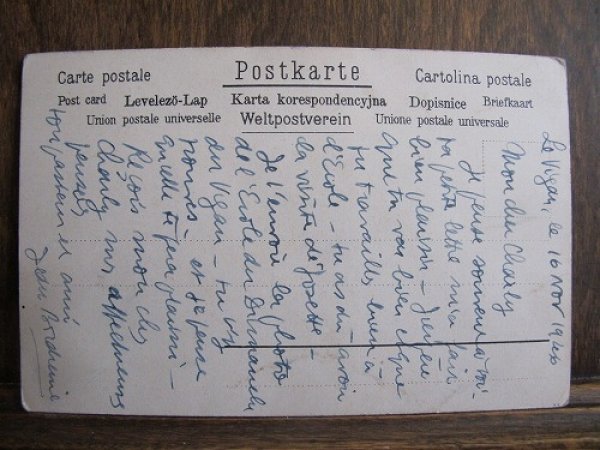 Carte postale
Postkarte
Cartolina postale
Post card Levelező-Lap Karta korespondencyjna Dopisnice Briefkaart
Union postale universelle
Weltpostverein
Unione postale universale
Le Vigan, le 16 Nov 1944
Mon cher Charly
Je pense souvent à toi -
ta petite lettre m'a fait
bien plaisir - J'espère
que tu vas bien et que
tu travailles bien à
l'Ecole - tu as dû avoir
la visite de Josette -
Je t'envoie la photo
de l'Ecole du Dimanche
du Vigan - tu y
et je pense
qu'elle te fera plaisir -
Reçois mon cher
Charly mes affectueuses
pensées
ton pasteur et ami
Jean